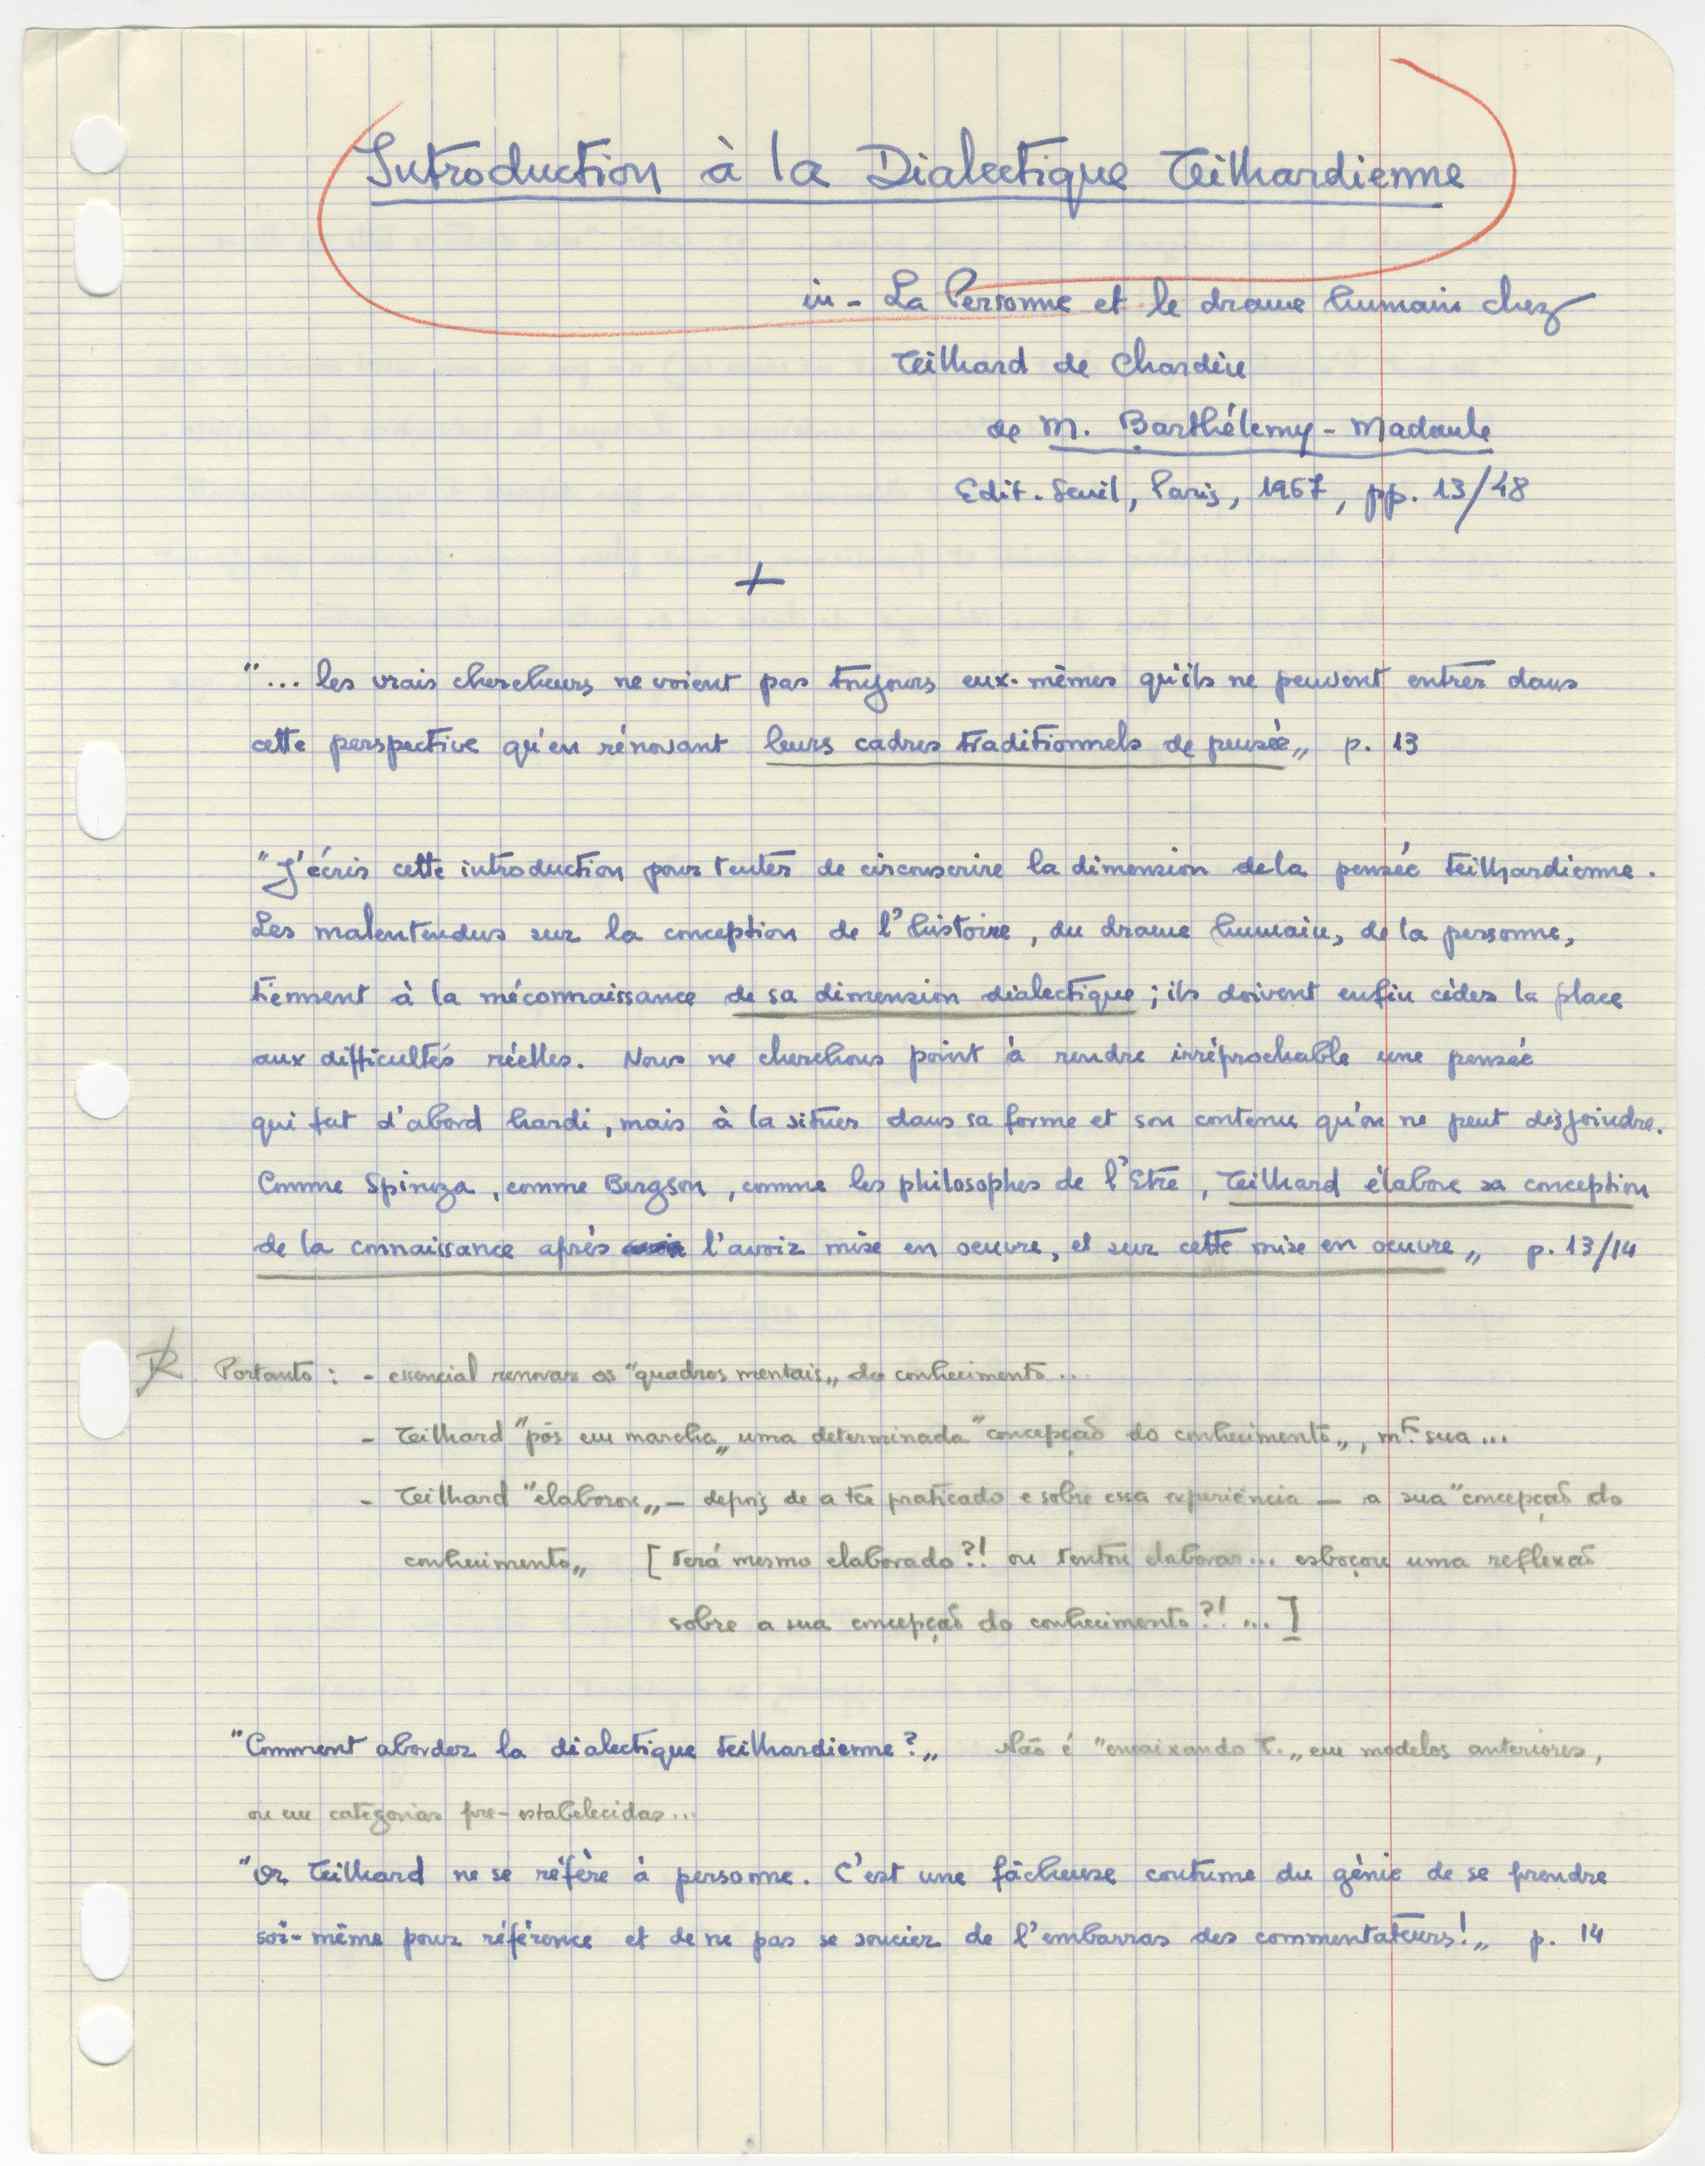 Introduction à la Dialectique Teilhardienne
in - La Personne et le drame humain chez
Teilhard de Chardin
de M. Barthélemy - Madaule
Edit. Seuil, Paris, 1967, pp. 13/48
+
"... les vrais chercheurs ne voient pas toujours eux-mêmes qu'ils ne peuvent entrer dans
cette perspective qu'en rénovant leurs cadres traditionnels de pensée„ p. 13
"J'écris cette introduction pour tenter de circonscrire la dimension de la pensée teilhardienne.
Les malentendus sur la conception de l'histoire, du drame humain, de la personne,
tiennent à la méconnaissance de sa dimension dialectique; ils doivent enfin céder la place
aux difficultés réelles. Nous ne cherchons point à rendre irréprochable une pensée
qui fut d'abord hardi, mais à la situer dans sa forme et son contenu qu'on ne peut disjoindre.
Comme Spinoza, comme Bergson, comme les philosophes de l'Etre, Teilhard élabore sa conception
de la connaissance après l'avoir mise en oeuvre, et sur cette mise en oeuvre„ p. 13/14
R Portanto: - essencial renovar os "quadros mentais„ do conhecimento..
- Teilhard "pôs em marcha„ uma determinada "concepção do conhecimento„, mt. sua...
- Teilhard "elaborou„ - depois de a ter praticado e sobre essa experiência - a sua "concepção do
conhecimento„ [terá mesmo elaborado?! ou tentou elaborar... esboçou uma reflexão
sobre a sua concepção do conhecimento?! ...]
"Comment aborder la dialectique teilhardienne?„ Não é "encaixando T.„ em modelos anteriores,
ou em categorias pre-estabelecidas...
"Or, Teilhard ne se réfère à personne. C'est une fâcheuse coutume du génie de se prendre
soi-même pour référence et de ne pas se soucier de l'embarras des commentateurs!„ p. 14